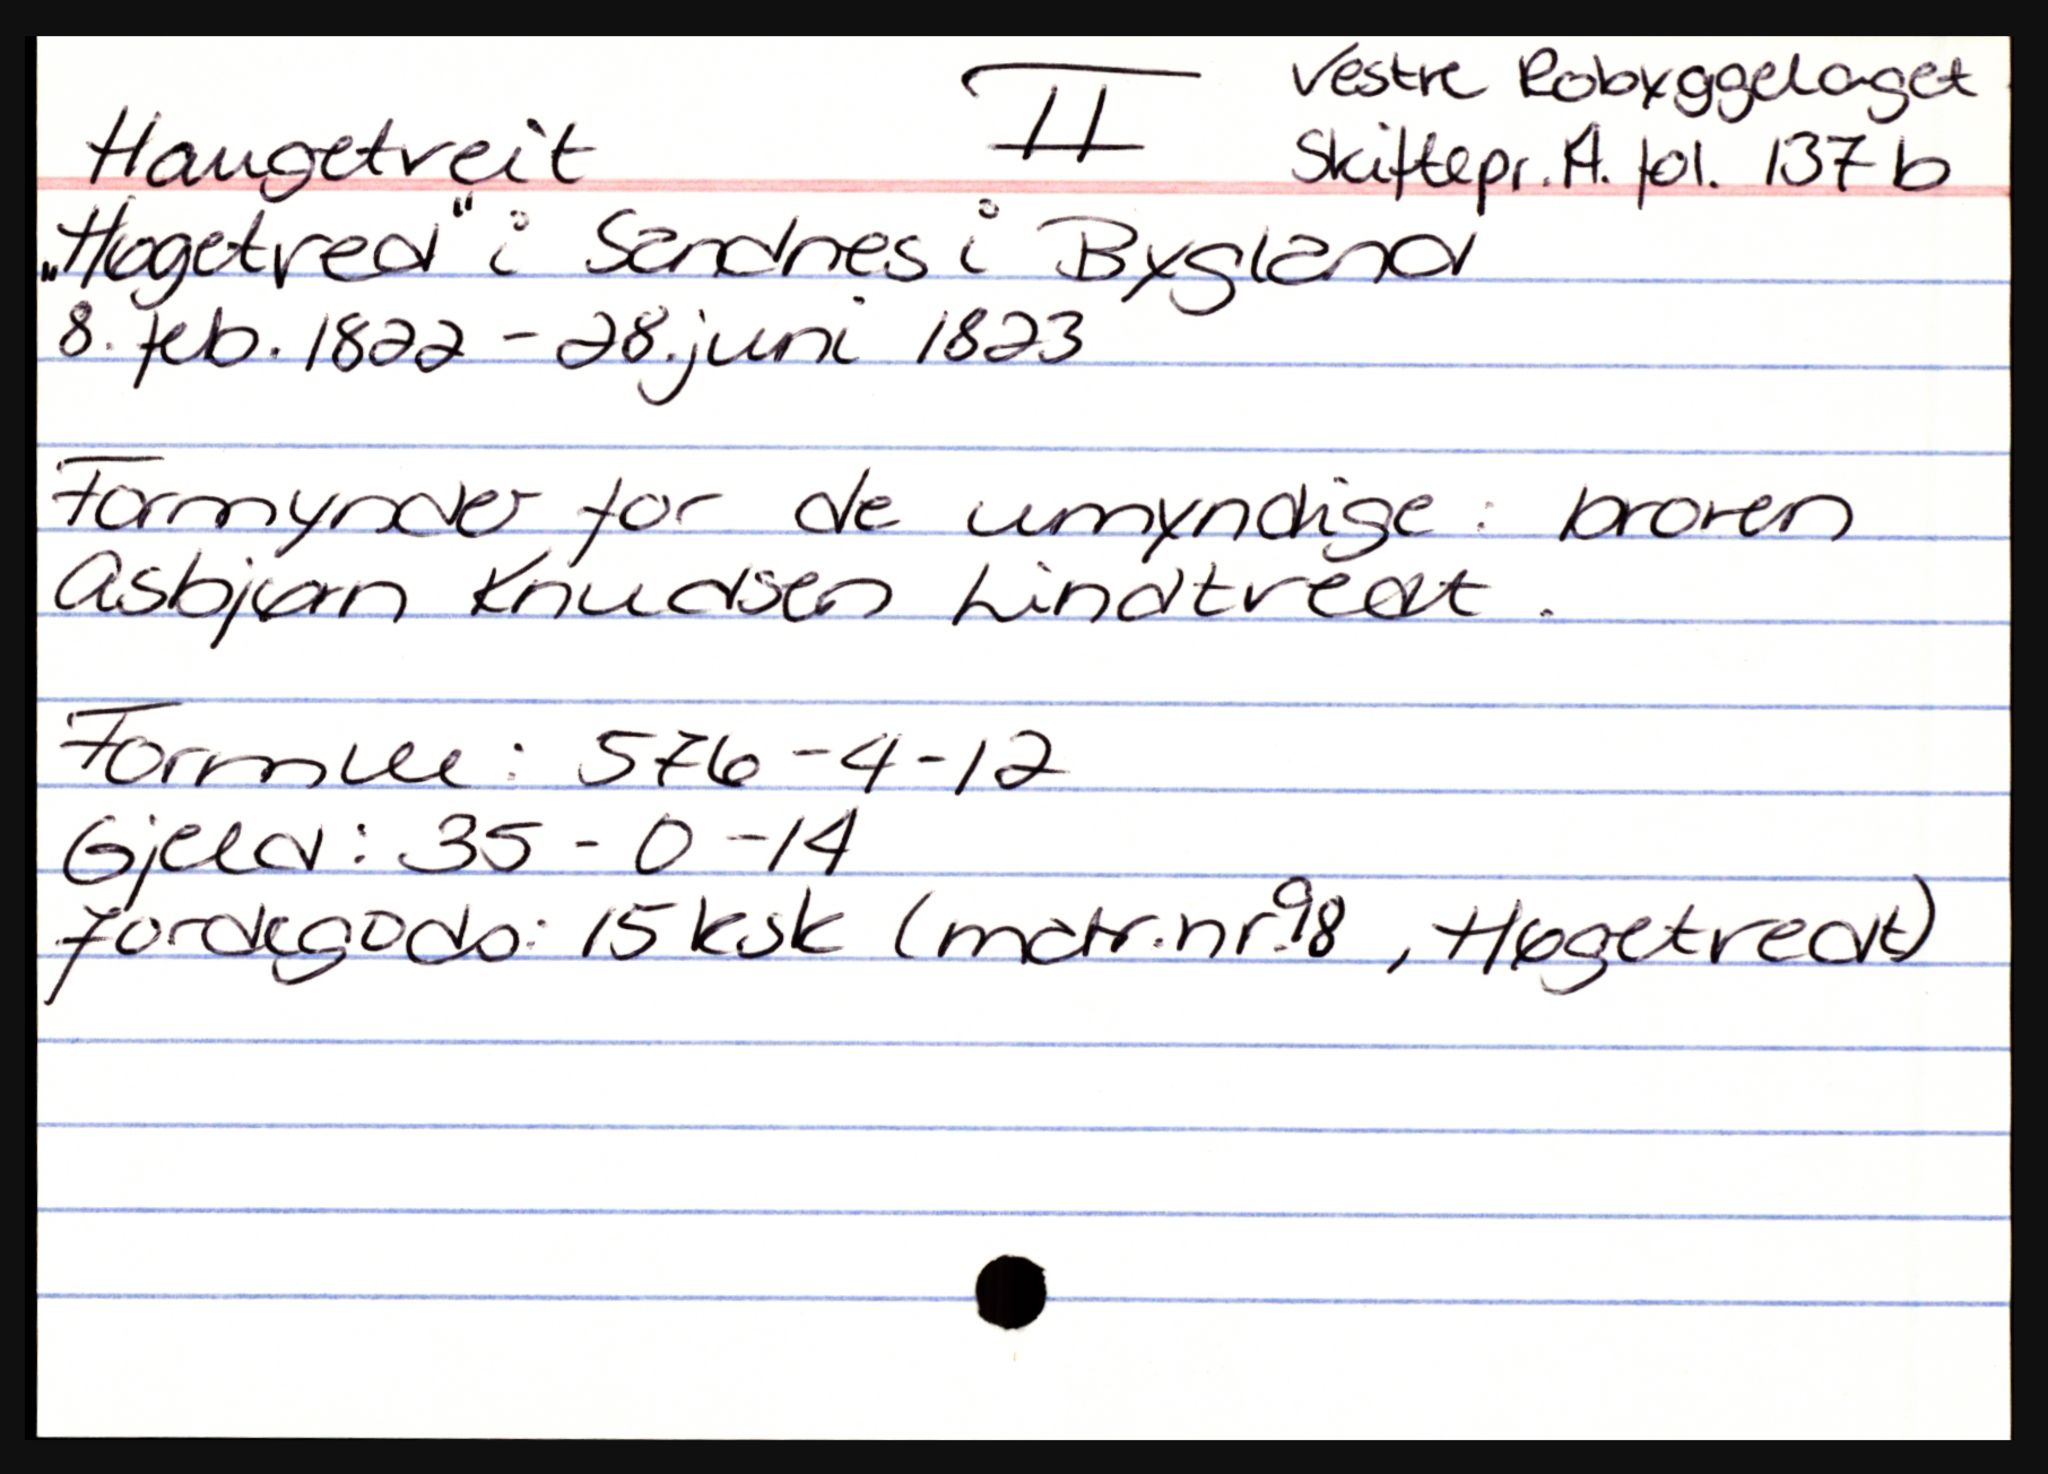 Haugetveit
II
Vestre Robyggelaget
Skiftepr. A. fol. 137 b
„Høgetved" i Sandnes i Bygland
8. feb. 1822 - 28. juni 1823
Formynder for de umyndige: broren
Asbjørn Knudsen Lindtvedt.
Formue: 576-4-12
Gjeld: 35-0-14
Jordegods: 15 ksk (matr.nr. 98, Høgetvedt)